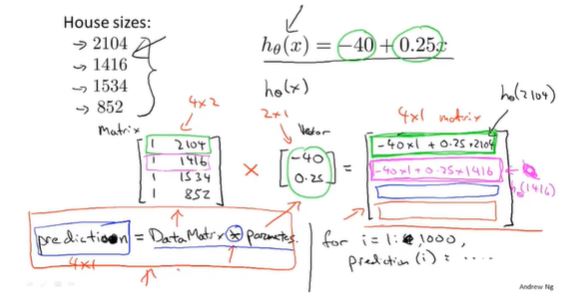 House sizes:
→ 2104
→ 1416
→ 1534
→ 852
hθ(x) = −40 + 0.25x
hθ(x)
Matrix
4x2
1 2104
1 1416
1 1534
1 852
×
2x1
Vector
−40
0.25
=
4x1 matrix
hθ(2104)
−40x1 + 0.25x2104
−40x1 + 0.25x1416
hθ(1416)
prediction = DataMatrix * Parameters.
4x1
for i = 1: 1000,
prediction(i) = ....
Andrew Ng